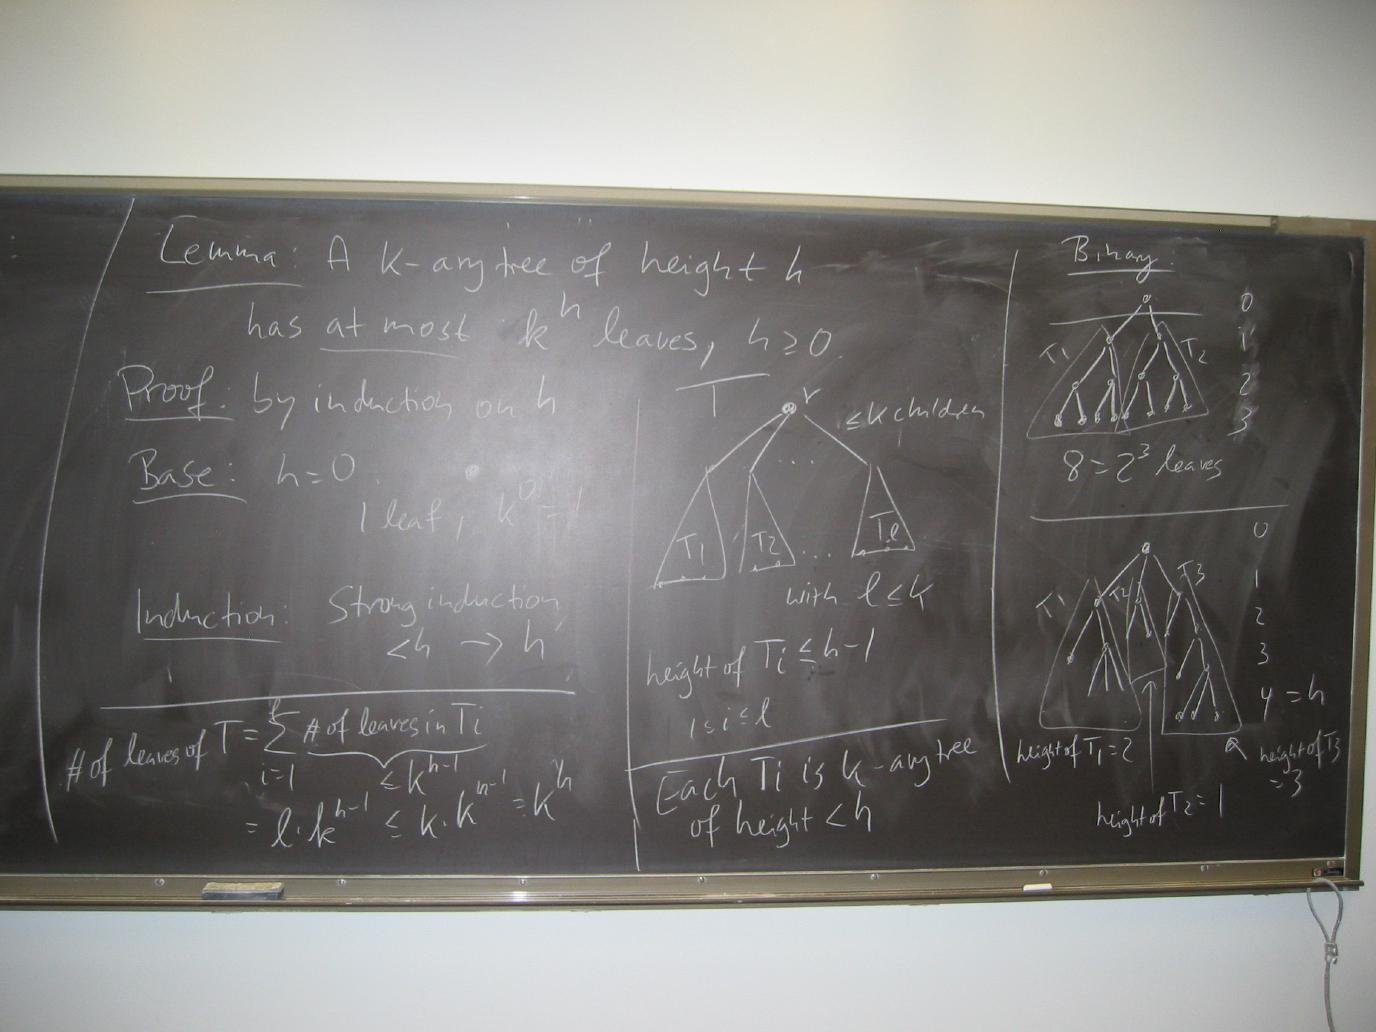 Lemma: A k-ary tree of height h
has at most k^h leaves, h≥0
Proof: by induction on h
Base: h=0.
1 leaf, k^0=1
Induction: Strong induction
<h → h
# of leaves of T = Σ_{i=1}^{ℓ} # of leaves in Ti
≤ k^{h-1}
= ℓ·k^{h-1} ≤ k·k^{h-1} = k^h
T
r
≤k children
...
T1 T2 .... Tℓ
with ℓ≤k
height of Ti ≤ h-1
1≤i≤ℓ
Each Ti is k-ary tree
of height <h
Binary:
0
1
2
3
T1 T2
8=2^3 leaves
0
1
2
3
4 = h
T1 T2 T3
height of T1=2
height of T3
=3
height of T2=1